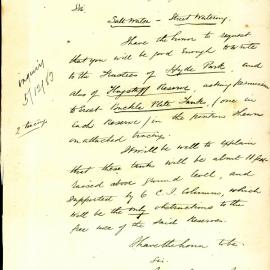 Sir
Salt Water - Street Watering.
I have the honor to request
that you will be good enough to write
to the Trustees of Hyde Park, and
also of Flagstaff Reserve, asking permission
to Erect Buckle Plate Tanks / one in
Each Reserve / in the positions shewn
on attached tracing.
It will be well to explain
that these tanks will be about 11 feet
raised above ground level, and
supported by 6 C. I. Columns, which
will be the only obstructions to the
free use of the said Reserves.
I have the honor to be.
Sir.
inquiry
5/12/
2 tracings